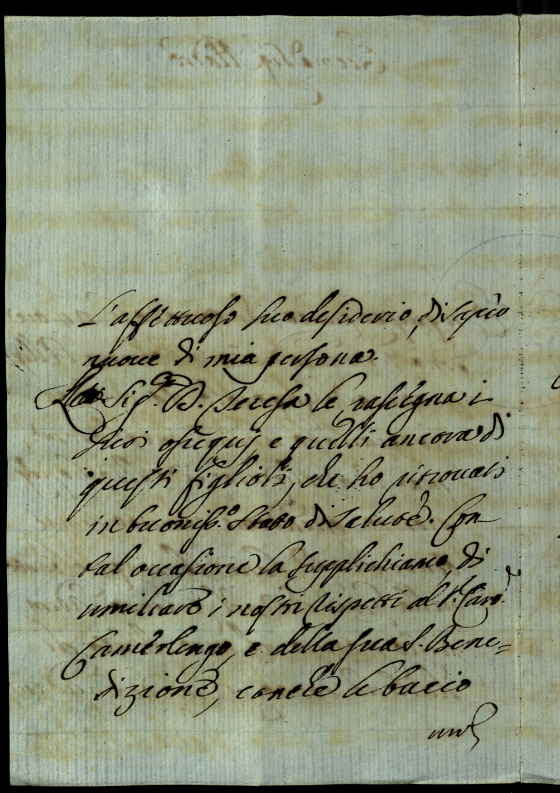 L'affettuoso suo desiderio, di saper
nuove di mia persona.
La Sig.ra D. Teresa le rassegna i
suoi ossequj, e quelli ancora di
questi figlioli, che ho ritrovati
in buoniss.o stato di salute. Con
tal occasione la supplichiamo, di
umiliare i nostri rispetti al S.r Card.e
Camerlengo, e della sua S. Bene=
dizione, con che le bacio